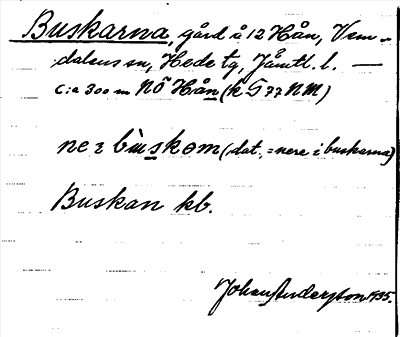 Buskarna, gård å 12 Hån, Vem-
dalens sn, Hede tg, Jämtl. l. —
c:a 300 m NÖ Hån (k G 77 NM)
ne i bùskəm (dat., = nere i buskarna)
Buskan kb.
Johan Anderson 1935.